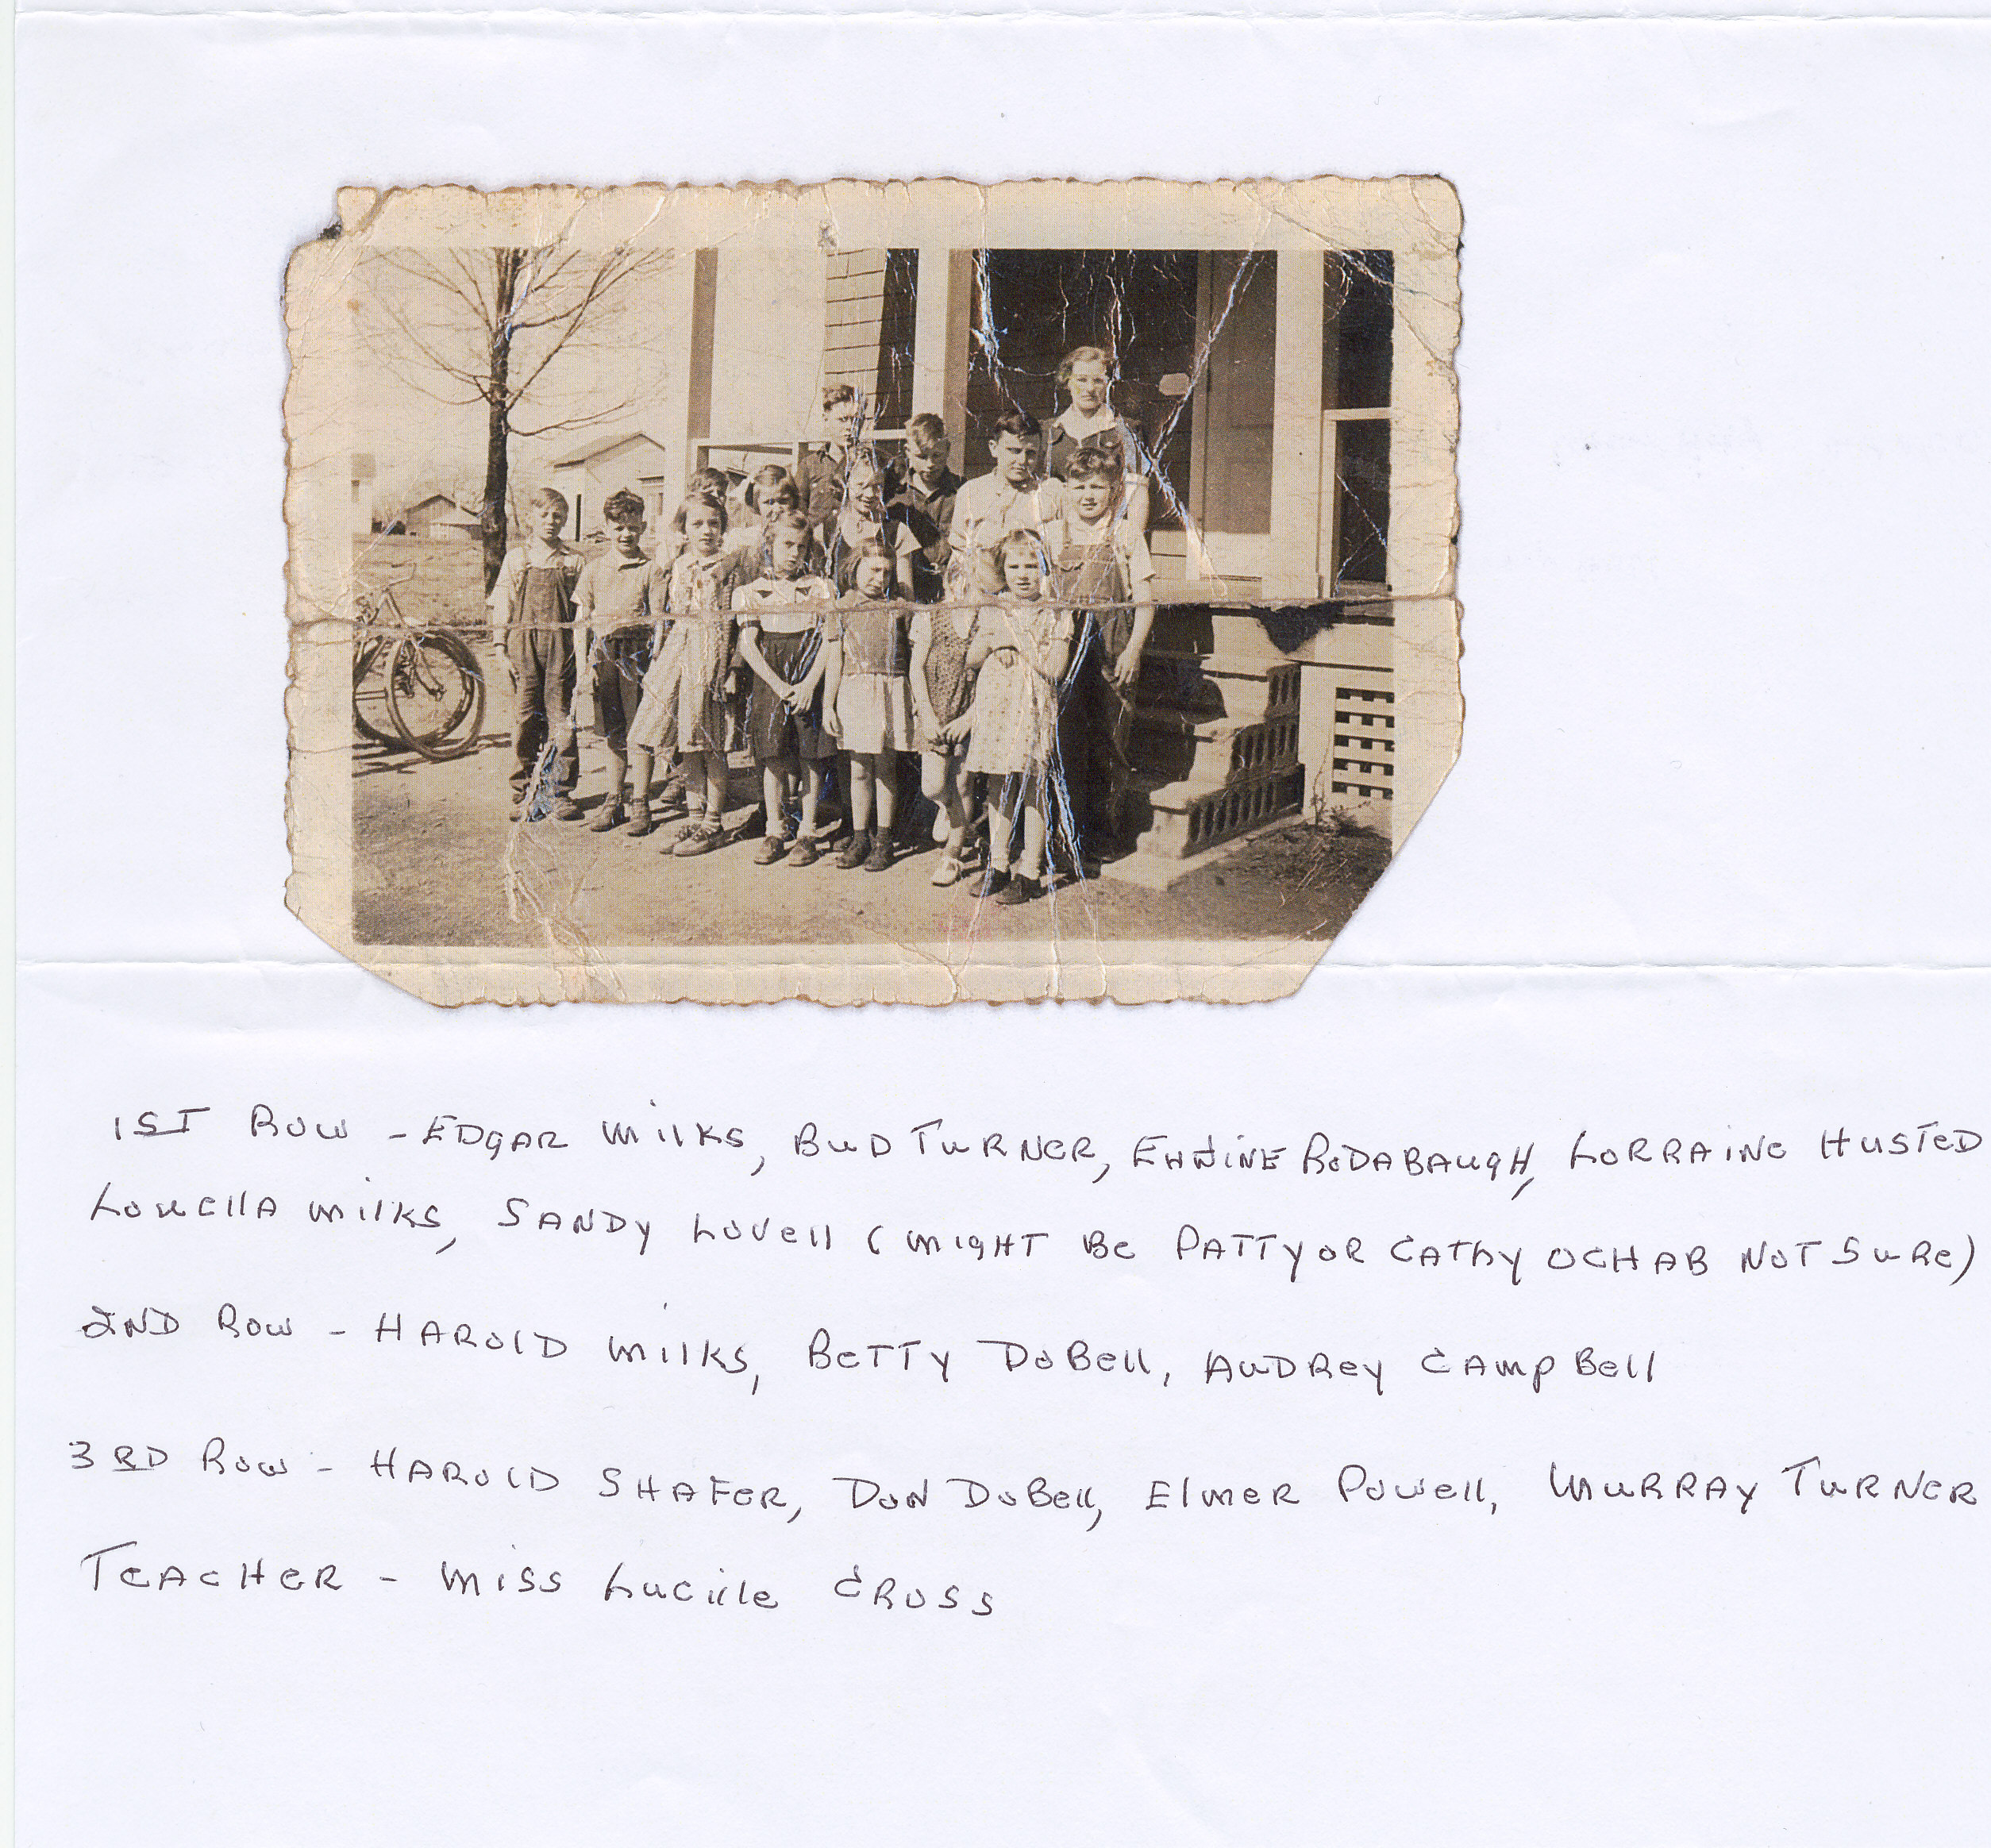 1ST ROW - EDGAR MILKS, BUD TURNER, RODABAUGH, LORRAINE HUSTED
LOUELLA MILKS, SANDY LOVELL (MIGHT BE PATTY OR CATHY OCHAB NOT SURE)
2ND ROW - HAROLD MILKS, BETTY DOBELL, AUDREY CAMPBELL
3RD ROW - HAROLD SHAFER, DON DOBELL, ELMER POWELL, MURRAY TURNER
TEACHER - MISS LUCILLE CROSS